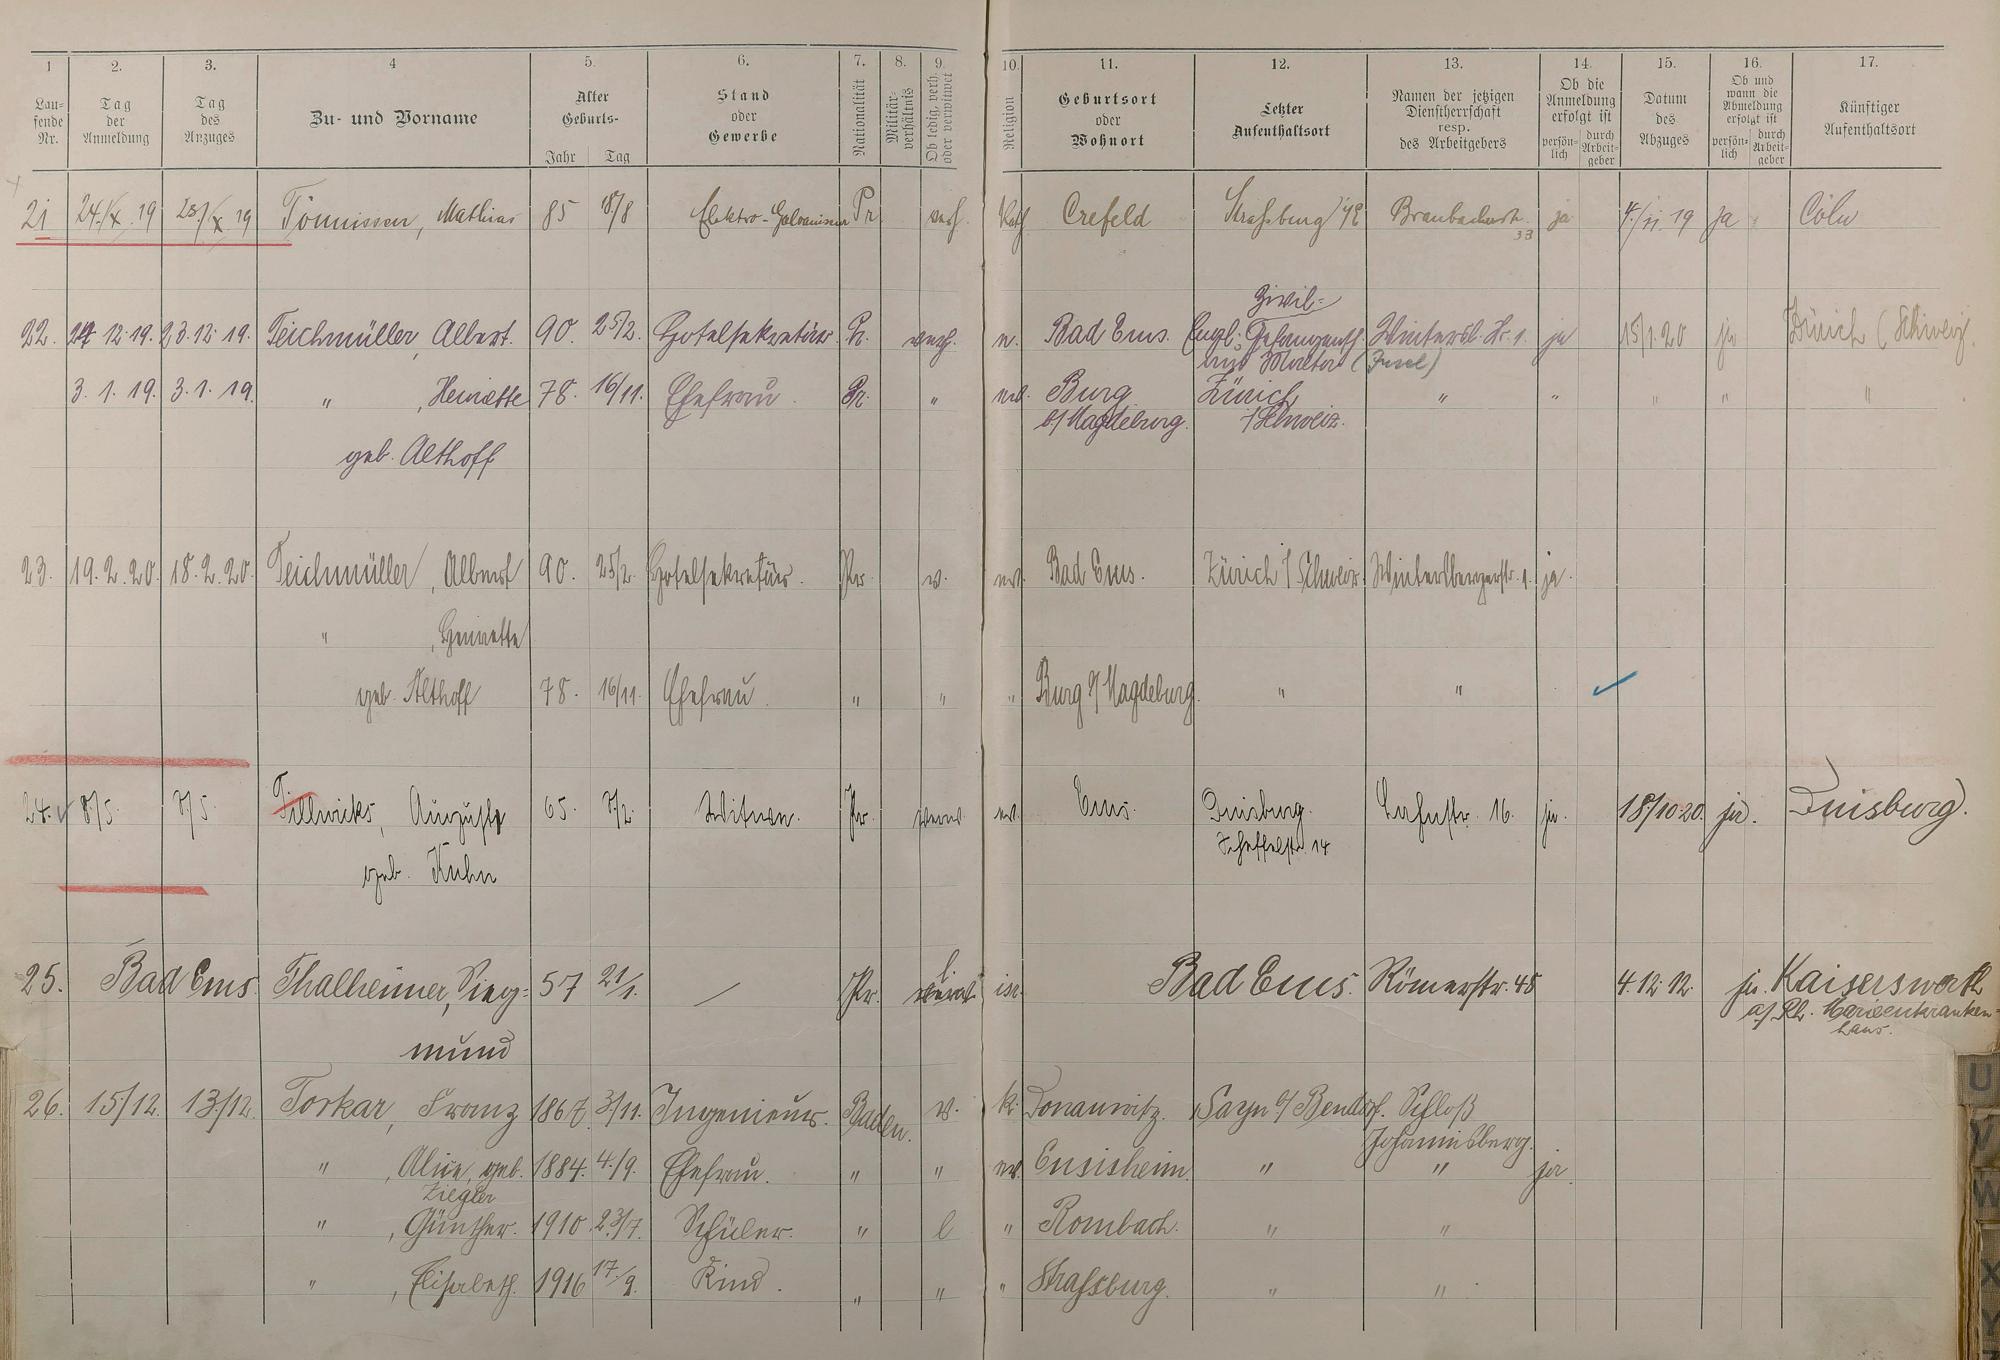 1 2. 3. 4 5. 6. 7. 8. 9. 10. 11. 12. 13. 14. 15. 16. 17.
Lau-
fende
Nr.
Tag
der
Anmeldung
Tag
des
Anzuges
Zu- und Vorname
Alter
Geburts-
Jahr Tag
Stand
oder
Gewerbe
Nationalität
Militär-
verhältnis
Ob ledig, verh.
oder verwitwet
Religion
Geburtsort
oder
Wohnort
Letzter
Aufenthaltsort
Namen der jetzigen
Dienstherrschaft
resp.
des Arbeitgebers
Ob die
Anmeldung
erfolgt ist
persön-
lich
durch
Arbeit-
geber
Datum
des
Abzuges
Ob und
wann die
Abmeldung
erfolgt ist
persön-
lich
durch
Arbeit-
geber
Künftiger
Aufenthaltsort
21 24./X. 19 23./X. 19 Tönnissen, Mathias 85 18/8 Elektro-Galvaniseur Pr verh. Kath Crefeld Straßburg i/E Braubacherstr. 33 ja 4./11.19 ja Cöln
22. 24 12 19. 23 12 19. Teichmüller, Albert. 90. 25/2. Hotelsekretär Pr. verh. e. Bad Ems. Zivil-
Engl. Gefangensch. Wintersb. Str. 1. ja 15/1.20 ja Zürich (Schweiz).
aus Malta (Insel)
3. 1. 19. 3. 1. 19. " , Henriette 78. 16/11. Ehefrau. Pr. " ev. Burg Zürich " " " " "
b/Magdeburg. i/Schweiz.
geb. Althoff
23. 19. 2. 20. 18. 2. 20. Teichmüller, Albert 90. 25/2. Hotelsekretär. Pr. v. ev. Bad Ems. Zürich i/Schweiz. Wintersbergerstr. 1. ja.
" , Henriette
geb. Althoff 78. 16/11. Ehefrau " " " Burg b/Magdeburg. " "
24. 8/5. 7/5 Tillwicks, Auguste 65. 7/2. Witwe. Pr. verw. ev. Ems. Duisburg. Lahnstr. 16. ja. 18/10 20. ja. Duisburg.
Scheffelstr. 14
geb. Kuhn
25. Bad Ems. Thalheimer, Sieg- 57 21/1. / Pr. l. isr. Bad Ems. Römerstr. 48 4. 12. 12. ja. Kaiserswerth
a/Rh. Marienkranken-
haus.
mund
26. 15/12. 13/12. Torkar, Franz 1867. 3/11. Ingenieur. Baden. v. k. Donauwitz. Sayn b/Bendorf. Schloß
Johannisberg.
" , Alice, geb. 1884. 4./9. Ehefrau. " " ev. Ensisheim. " " ja.
Ziegler
" , Günther. 1910. 23/7. Schüler. " l " Rombach. " "
" , Elisabeth. 1916 17/9. Kind. " " " Straßburg. " "
U
V
W
X
Y